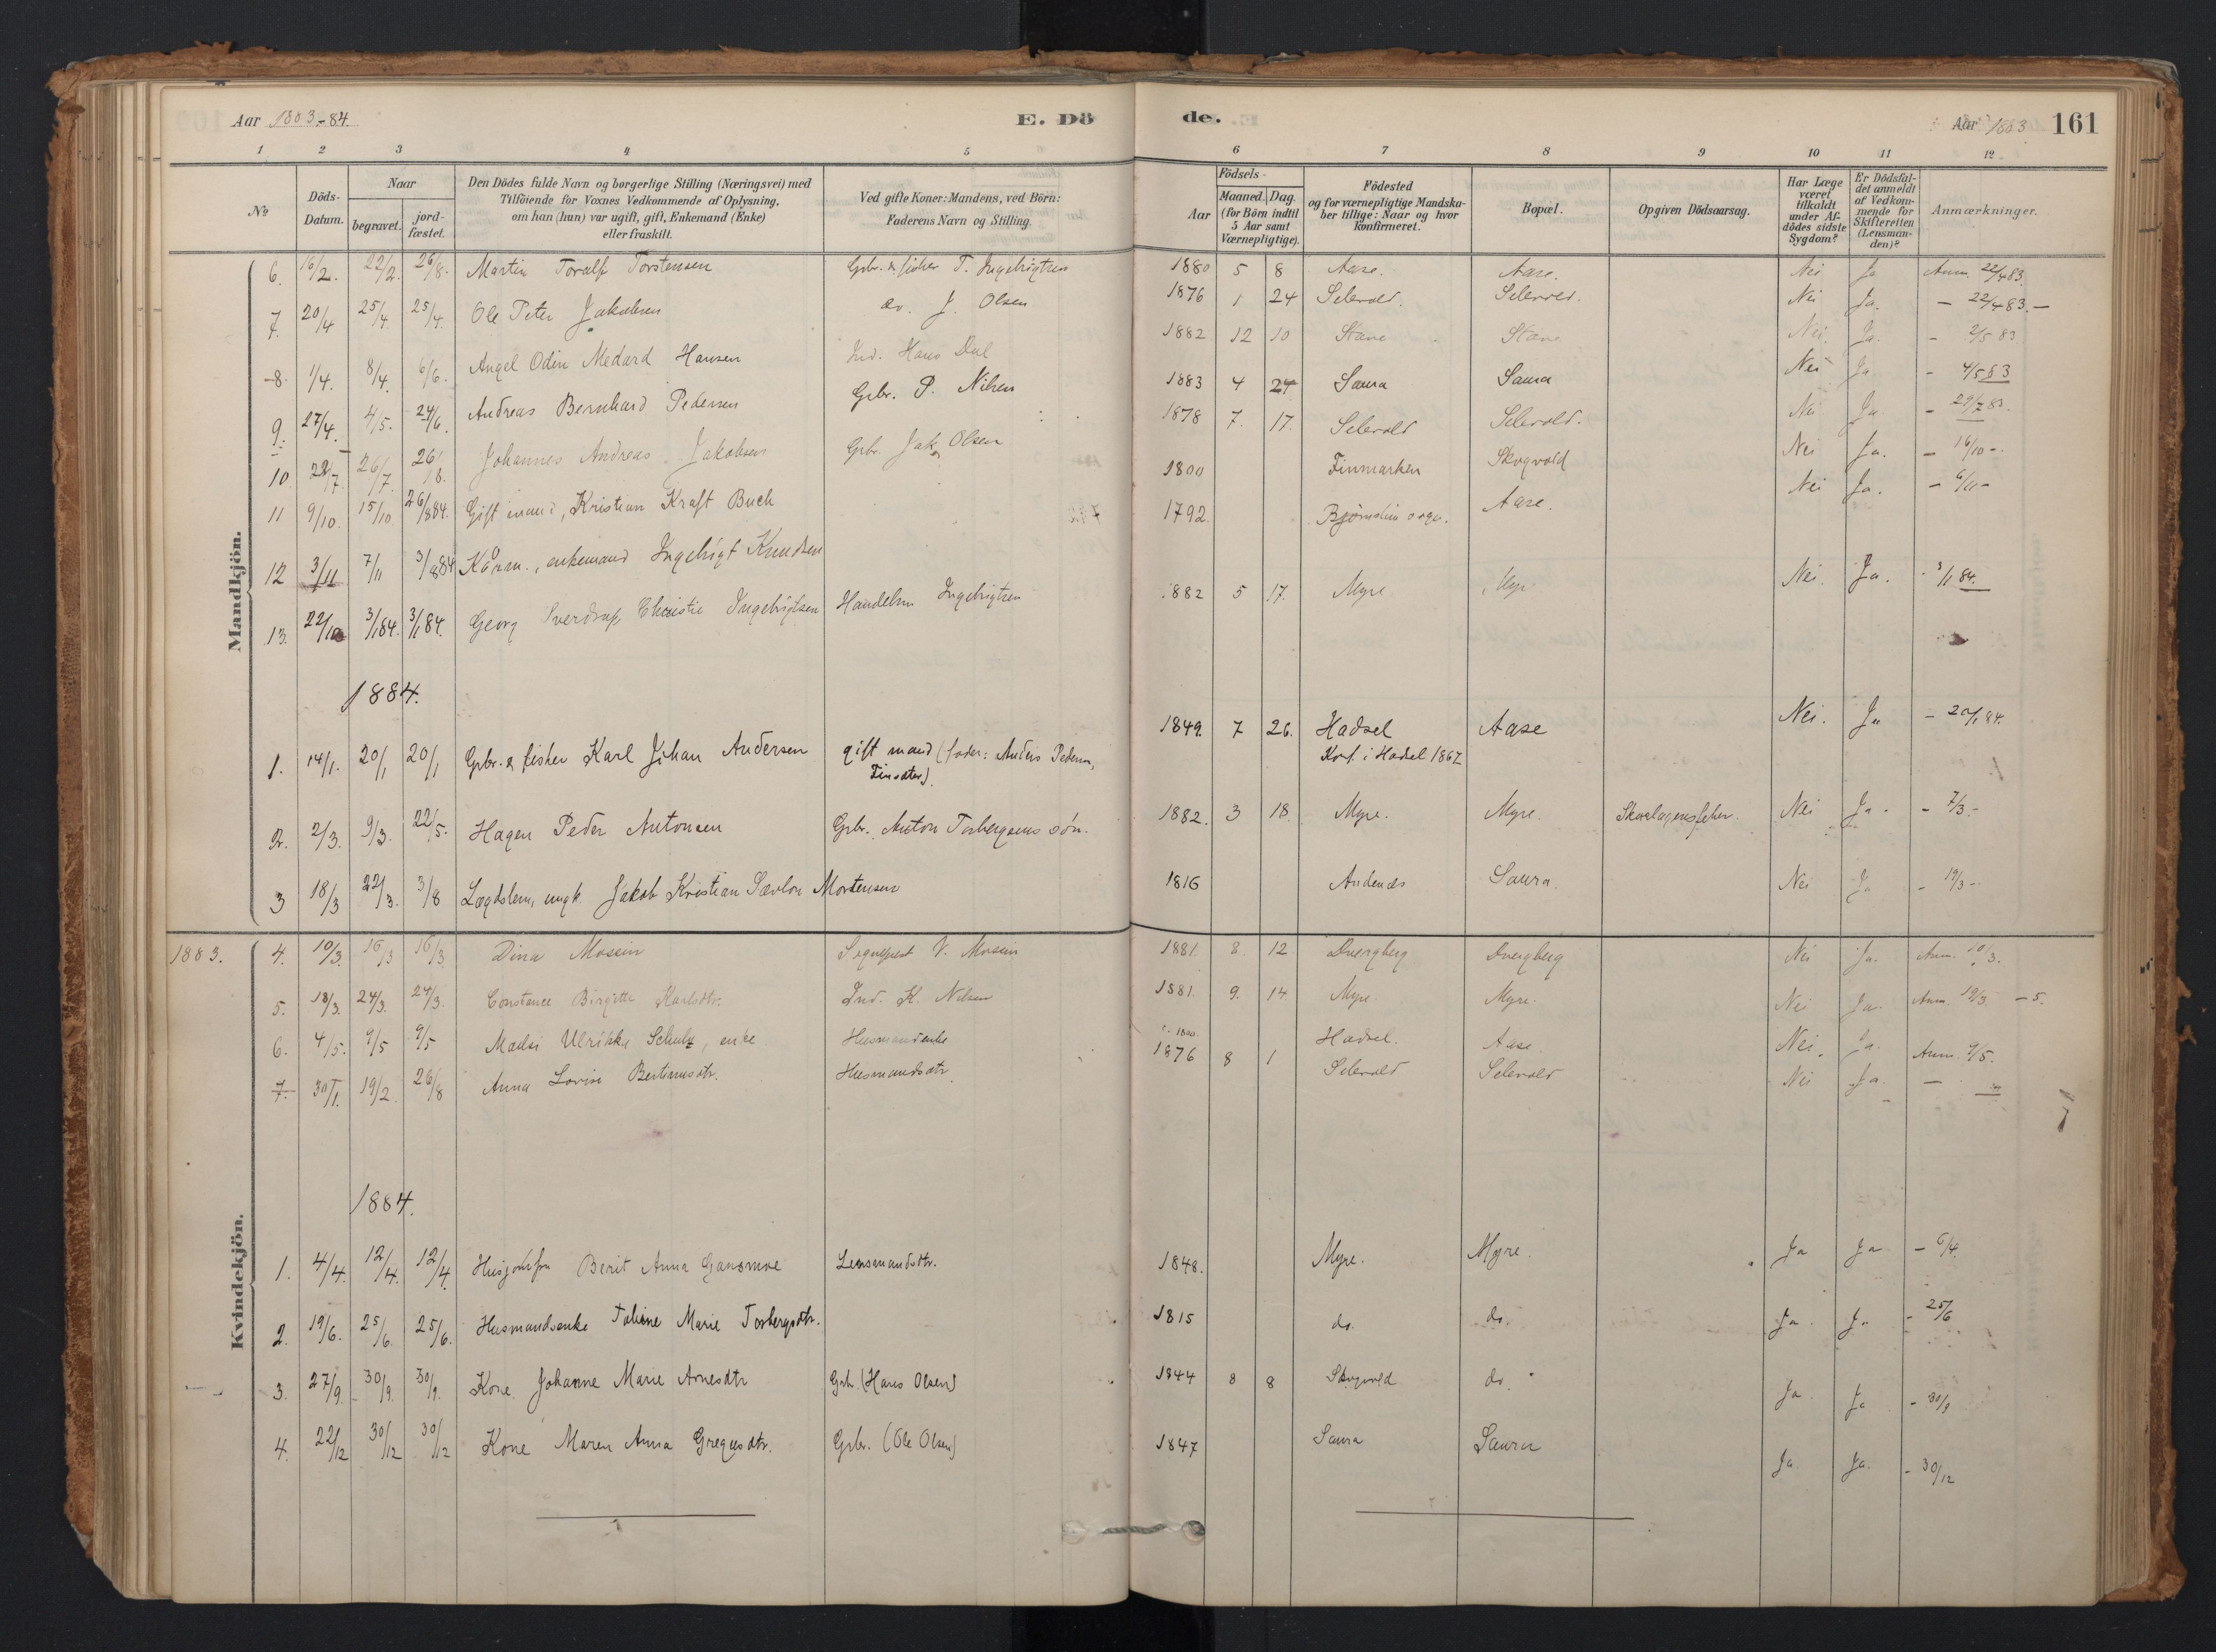 Aar 1883-84.
E. Dö
de.
Aar 1883
161
1 2 3 4 5 6 7 8 9 10 11 12
№
Döds-Datum.
Naar
begravet.
jord-fæstet.
Den Dödes fulde Navn og borgerlige Stilling (Næringsvei) med
Tilföiende for Voxnes Vedkommende af Oplysning,
om han (hun) var ugift, gift, Enkemand (Enke)
eller fraskilt.
Ved gifte Koner: Mandens, ved Börn:
Faderens Navn og Stilling.
Födsels-
Aar
Maaned. Dag.
(for Börn indtil
5 Aar samt
Værnepligtige).
Födested
og for værnepligtige Mandska-
ber tillige: Naar og hvor
konfirmeret.
Bopæl.
Opgiven Dödsaarsag.
Har Læge
været
tilkaldt
under Af-
dödes sidste
Sygdom?
Er Dödsfal-
det anmeldt
af Vedkom-
mende for
Skifteretten
(Lensman-
den)?
Anmærkninger.
Mandkjön.
6. 16/2. 22/2. 26/8. Martin Toralf Torstensen Gbr. & fisker T. Ingebrigtsen 1880 5 8 Aase. Aase. Nei Ja Anm. 22/4 83.
7. 20/4 25/4. 25/4. Ole Peter Jakobsen do. J. Olsen 1876 1 24 Selevold. Selevold. Nei Ja. - 22/4 83.-
8. 1/4. 8/4. 6/6. Angel Odin Medard Hansen Ind. Hans Dal 1882 12 10 Stave Stave Nei. Ja. - 2/5 83.
9. 27/4. 4/5. 24/6. Andreas Bernhard Pedersen Gbr. P. Nilsen 1883 4 24 Saura Saura Nei Ja - 4/5 83
10. 22/7. 26/7. 26/8. Johannes Andreas Jakobsen Gbr. Jak. Olsen 1878 7. 17. Selevold Selevold. Nei Ja - 29/7 83.
11 9/10. 15/10. 26/8 84. Gift mand, Kristian Kraft Buch 1800 Finmarken Skogvold Nei Ja. - 16/10 -.
12 3/11 7/11 3/8 84 Kårm., enkemand Ingebrigt Knudsen 1792. Aase. Nei Ja. - 6/11 -
13. 22/12 3/1 84. 3/1 84. Georg Sverdrup Christie Ingebrigtsen Handelsm Ingebrigtsen 1882 5 17. Myre Myre Nei. Ja. - 3/1 84.
1884.
1. 14/1. 20/1 20/1 Gbr. & fisker Karl Johan Andersen gift mand (fader: Anders Pedersen,
1849. 7 26. Hadsel Aase Nei. Ja - 20/1 84.
Konf. i Hadsel 1867
2. 2/3. 9/3. 22/5. Hagen Peder Antonsen Gbr. Anton Torbergsens sön. 1882. 3 18. Myre. Myre. Skarlagensfeber. Nei Ja. - 7/3 -
3 18/3 22/3. 3/8 Lægdslem, ungk. Jakob Kristian Mortensen 1816 Andenæs Saura. Nei Ja - 19/3 -
Kvindekjön.
1883. 4. 10/3. 16/3 16/3. Dina Mosein V. Mosein 1881. 8. 12 Dvergberg Dvergberg Nei Ja. Anm. 10/3.
5. 18/3. 24/3. 24/3. Constance Birgitte Karlsdtr. Ind. K. Nilsen 1881. 9. 14. Myre. Myre. Nei Ja. Anm. 19/3. - 5.
6. 4/5. 9/5 9/5 Madsi Ulrikke Schulz, enke Husmandsenke 1800. Hadsel. Aase. Nei. Ja. Anm. 9/5.
7. 30/1. 19/2. 26/8 Anna Lovise Bertinusdtr. Husmandsdtr. 1876 8 1 Selevold Selevold Nei Ja. -
1884.
1. 4/4. 12/4. 12/4. Husjomfru Berit Anna Gansmoe Lensmandsdtr. 1848. Myre. Myre. Ja Ja - 6/4.
2. 19/6. 25/6. 25/6. Husmandsenke Marie Torbergsdtr. 1815 do. do. Ja. Ja - 25/6
3. 27/9. 30/9. 30/9. Kone Johanne Marie Arnesdtr Gbr. (Hans Olsen) 1844 8 8 Skogvold do. Ja Ja - 30/9
4. 22/12 30/12 30/12 Kone Maren Anna Gregusdtr. Gbr. (Ole Olsen) 1847 Saura Saura Ja. Ja. - 30/12